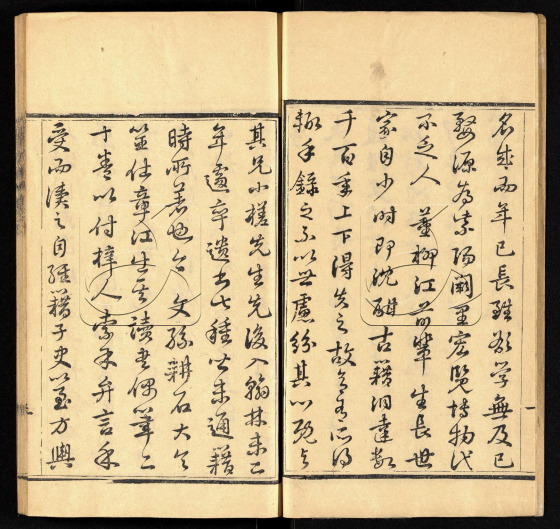 名成而年已長雖欲學無及已
婺源為紫陽闕里宏覽博物代
不乏人董柳江前輩生長世
家自少時即沈酣古籍洞達數
千百年上下得失之故有所得
輒手錄之不以世慮紛其心既與
其兄小槎先生先後入翰林未三
年遽卒遺書七種皆未通籍
時所著也文孫耕石大令
筮仕章江生讀書偶筆二
十卷以付梓人索余弁言余
受而讀之自經籍子史以至方輿